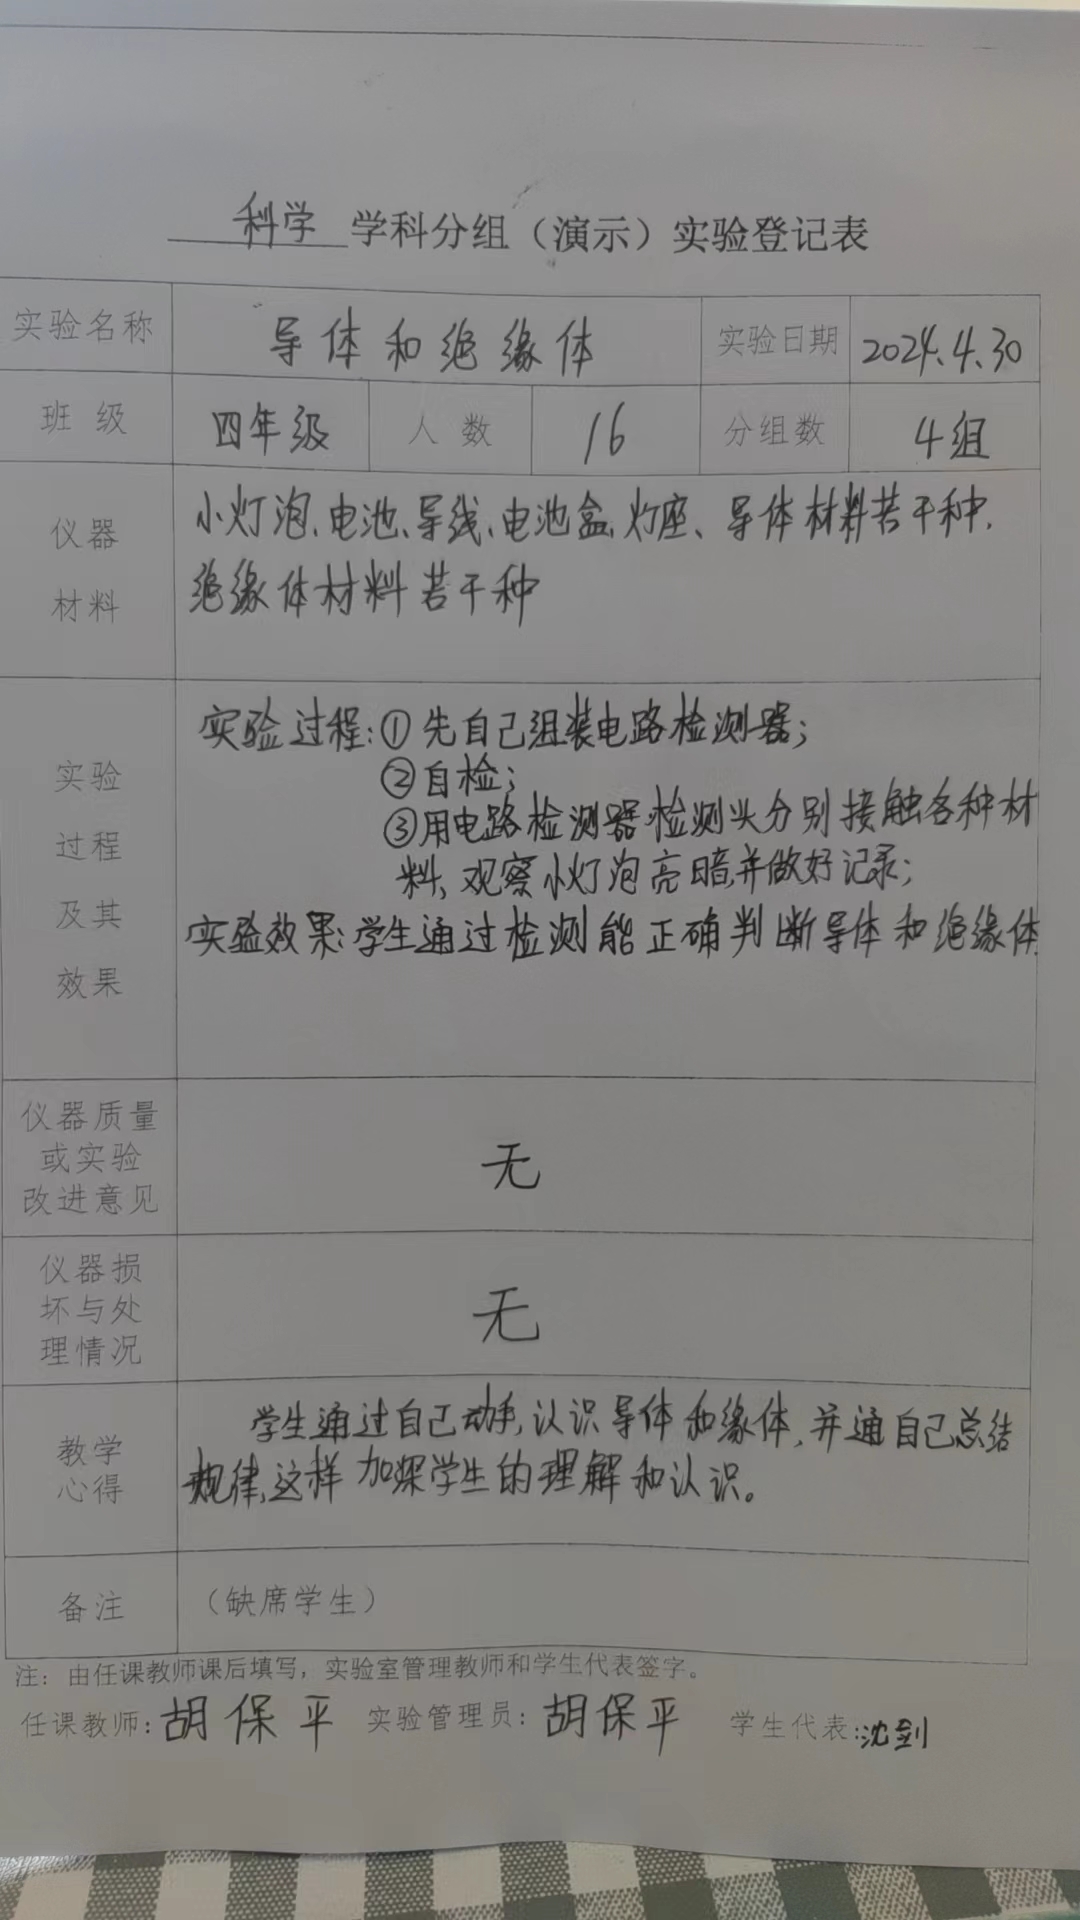 科学 学科分组（演示）实验登记表
实验名称 导体和绝缘体 实验日期 2024.4.30
班级 四年级 人数 16 分组数 4组
仪器
材料
小灯泡、电池、导线、电池盒、灯座、导体材料若干种、
绝缘体材料若干种
实验
过程
及其
效果
实验过程:①先自己组装电路检测器;
②自检;
③用电路检测器检测头分别接触各种材
料,观察小灯泡亮暗,并做好记录;
实验效果:学生通过检测能正确判断导体和绝缘体
仪器质量
或实验
改进意见
无
仪器损
坏与处
理情况
无
教学
心得
学生通过自己动手,认识导体和缘体,并通自己总结
规律,这样加深学生的理解和认识。
备注 （缺席学生）
注：由任课教师课后填写，实验室管理教师和学生代表签字。
任课教师:胡保平 实验管理员:胡保平 学生代表:沈到